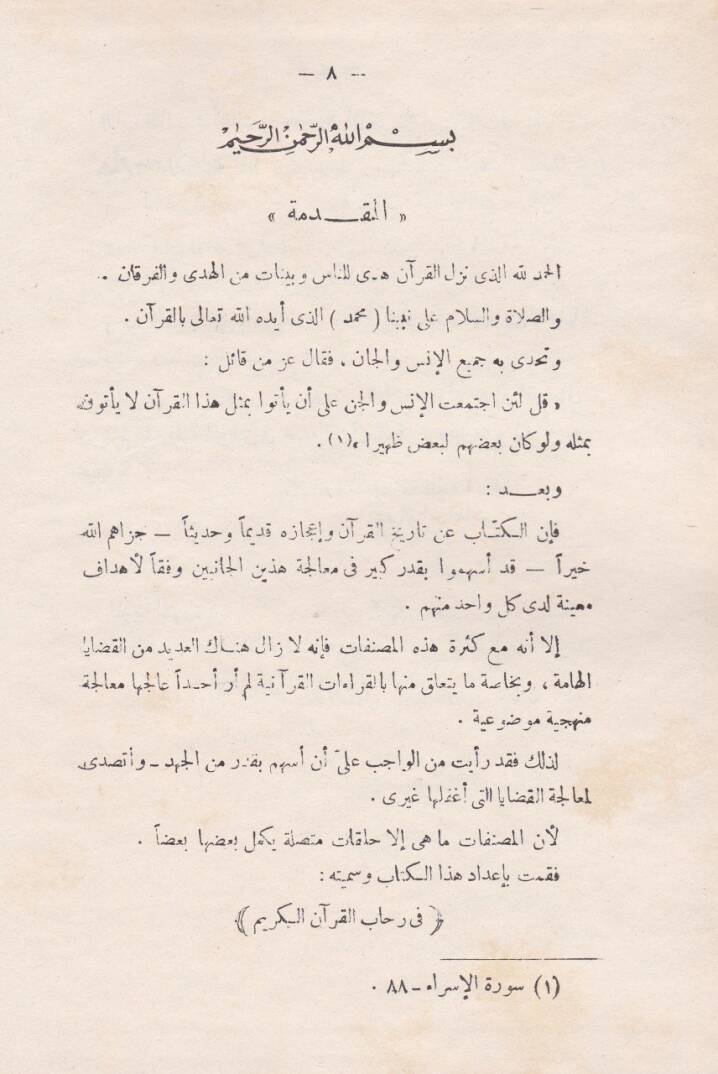 — ٨ —
بسم الله الرحمن الرحيم
« المقدمة »
الحمد لله الذى نزل القرآن هدى للناس وبينات من الهدى والفرقان .
والصلاة والسلام على نبينا ( محمد ) الذى أيده الله تعالى بالقرآن .
وتحدى به جميع الإنس والجان ، فقال عز من قائل :
« قل لئن اجتمعت الإنس والجن على أن يأتوا بمثل هذا القرآن لا يأتون
بمثله ولو كان بعضهم لبعض ظهيرا »(١) .
وبعد :
فإن الكتاب عن تاريخ القرآن وإعجازه قديماً وحديثاً — جزاهم الله
خيراً — قد أسهموا بقدر كبير فى معالجة هذين الجانبين وفقاً لأهداف
معينة لدى كل واحد منهم .
إلا أنه مع كثرة هذه المصنفات فإنه لا زال هناك العديد من القضايا
الهامة ، وبخاصة ما يتعلق منها بالقراءات القرآنية لم أر أحداً عالجها معالجة
منهجية موضوعية .
لذلك فقد رأيت من الواجب علىّ أن أسهم بقدر من الجهد — وأتصدى
لمعالجة القضايا التى أغفلها غيرى .
لأن المصنفات ما هى إلا حلقات متصلة يكمل بعضها بعضاً .
فقمت بإعداد هذا الكتاب وسميته :
﴿ فى رحاب القرآن الكريم ﴾
(١) سورة الإسراء — ٨٨ .